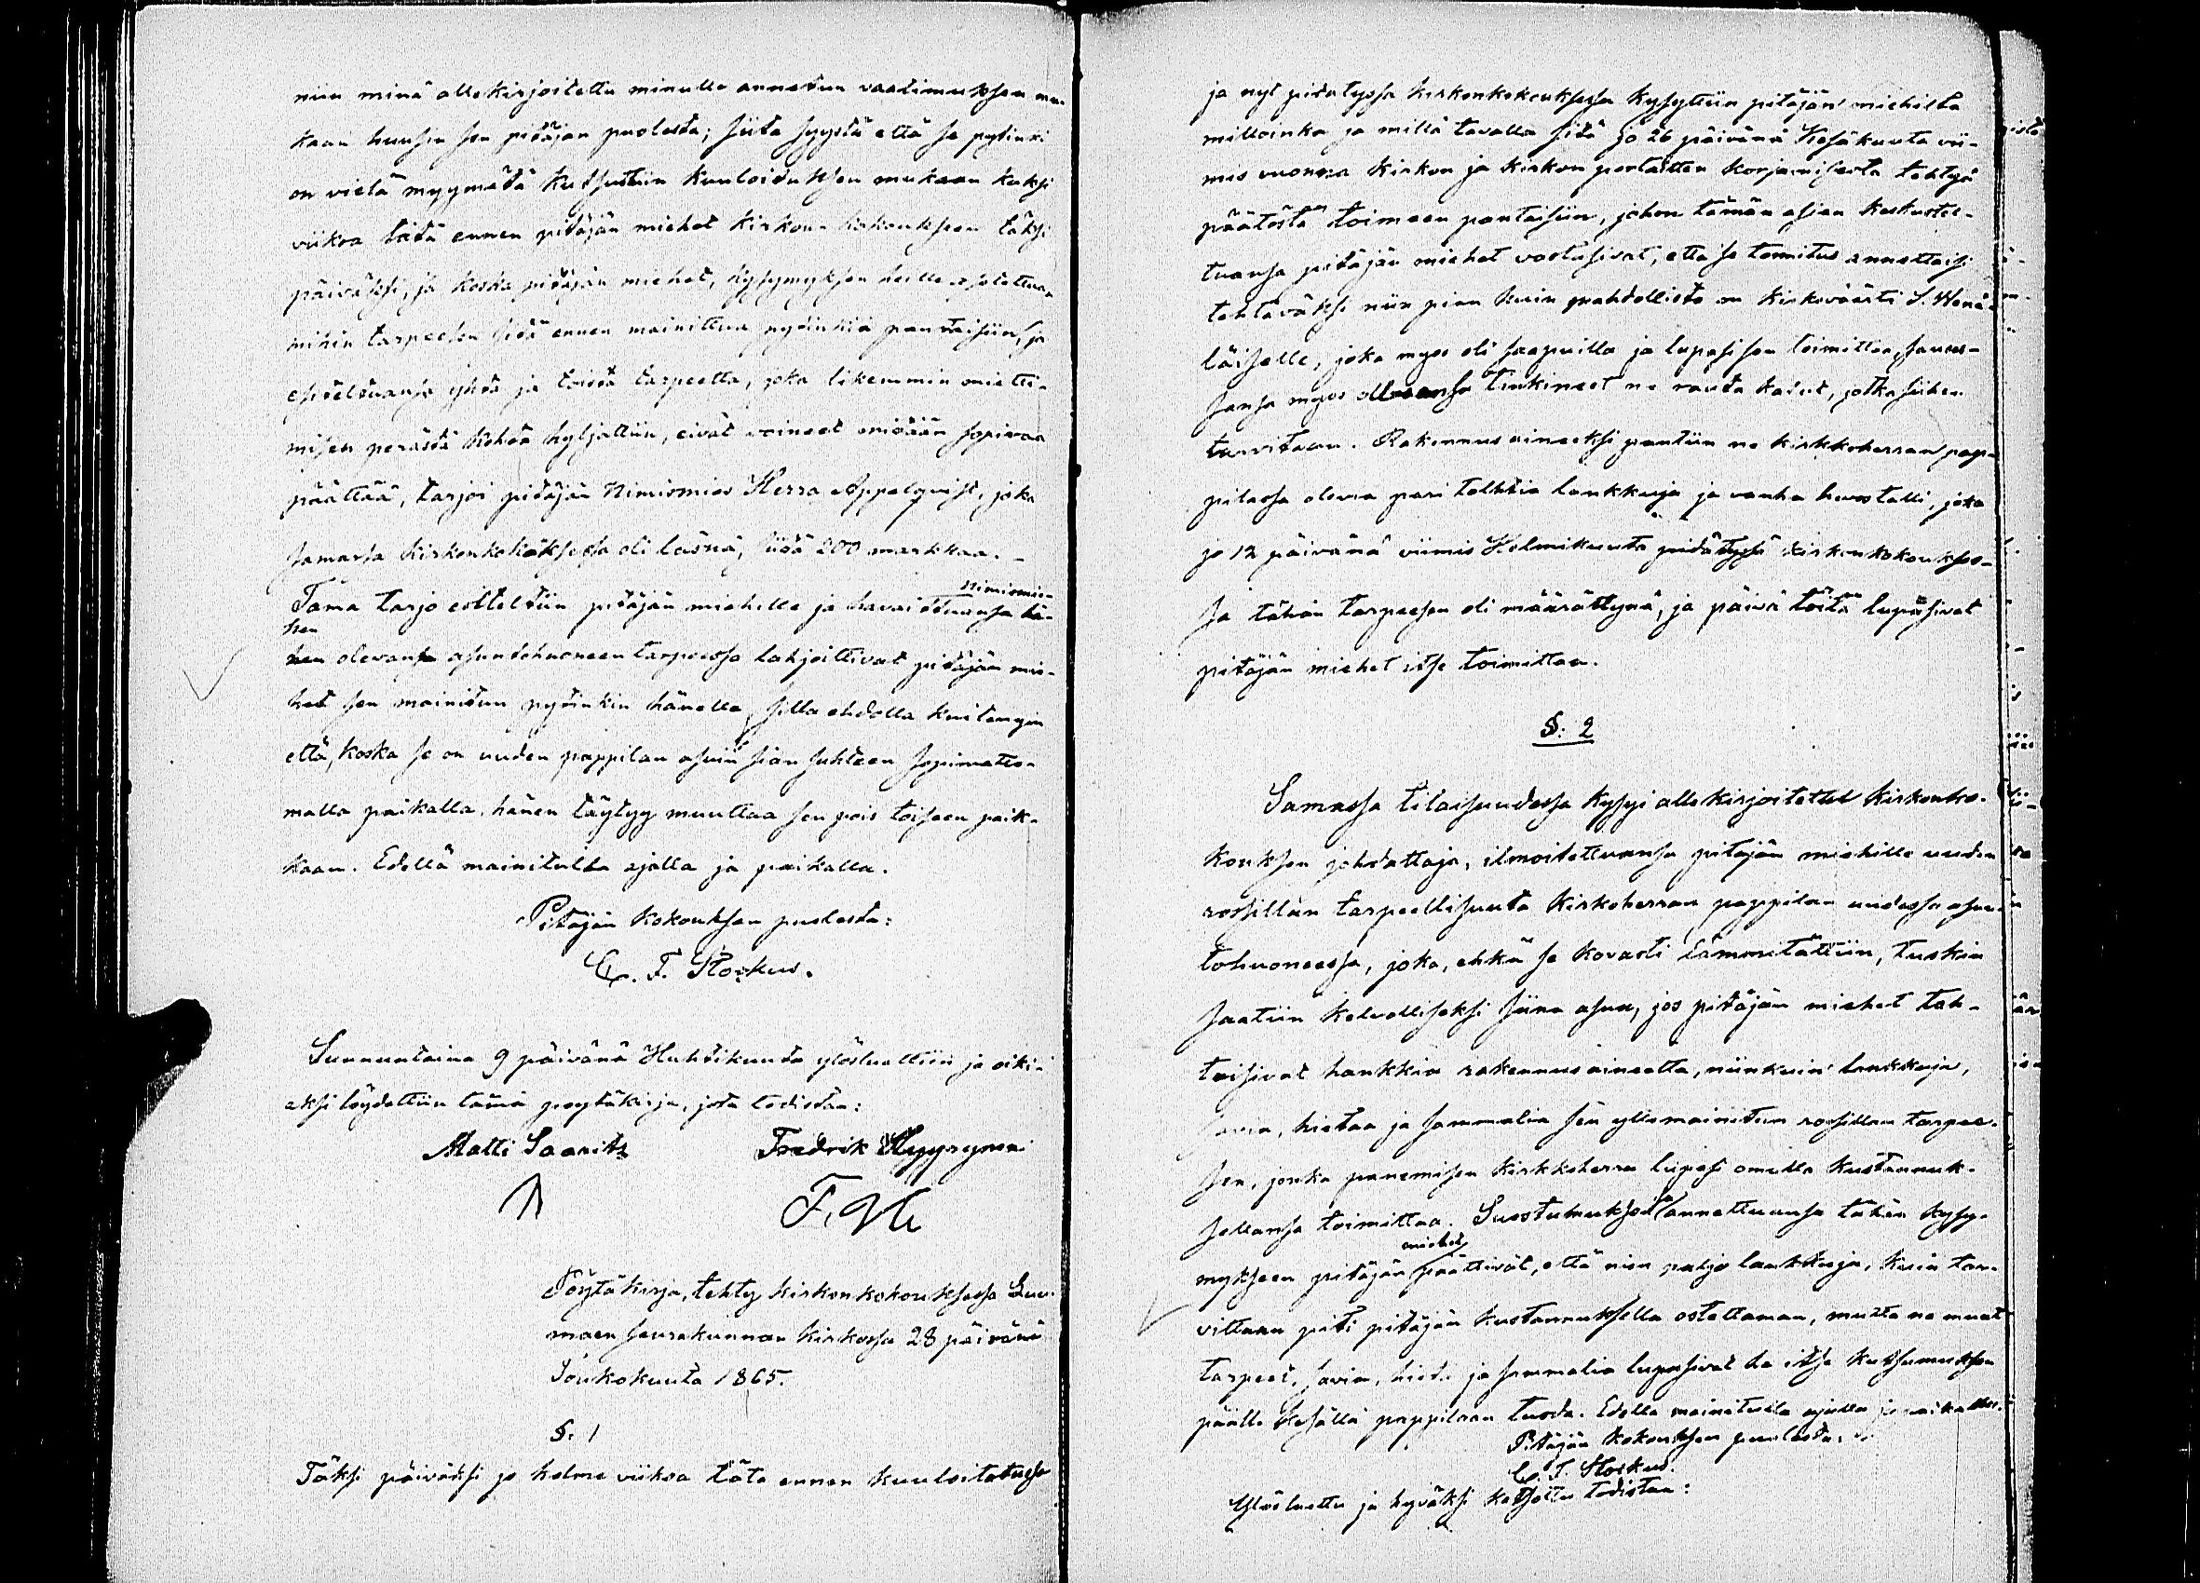 niin minä allekirjoitettu minulle annetun vaatimuksen mu-
kaan huusin sen pitäjän puolesta; siitä syystä että se pytinki
on vielä myymätä kutsuttiin kuuloituksen mukaan kaksi
viikoa tätä ennen pitäjän miehet kirkon-kokoukseen täksi
päiväksi, ja koska pitäjän miehet, kysymyksen heille esitettua
mihin tarpeesen sitä ennen mainittua pytinkiä pantaisiin, ja
esiteltuansa yhtä ja toista tarpeetta, joka likemmin mietti-
misen perästä kohta hyljättiin, eivät voineet mitään sopivaa
päättää, tarjoi pitäjän Nimismies Herra Appelqvist, joka
samassa kirkonkokouksessa oli läsnä, siitä 200 markkaa.-
Tämä tarjo esiteltiin pitäjän miehille ja havaittuansa nimismie-
hen olevansa asuntohuoneen tarpeessa lahjoittivat pitäjän mie-
het sen mainitun pytinkin hänelle, sillä ehdolla kuitengin
että, koska se on uuden pappilan asuin sian suhteen sopimatto-
malla paikalla, hänen täytyy muuttaa sen pois toiseen paik-
kaan. Edellä mainitulla ajalla ja paikalla.
Pitäjän kokouksen puolesta:
C. F. Stockus.
Sunnuntaina 9 päivänä Huhtikuuta ylösluettiin ja oiki-
aksi löydettiin tämä poytäkirja, jota todistaa:
Matti Saarits Fredrik Hyyryna
F. H
Pöytäkirja, tehty kirkonkokouksessa Luu-
maen seurakunnan kirkossa 28 päivänä
Toukokuuta 1865.
§. 1
Täksi päiväksi jo kolme viikoa täta ennen kuuloitetussa
ja nyt pidätyssä kirkonkokouksessa kysyttiin pitäjän miehiltä
milloinka ja millä tavalla sitä jo 26 päivänä Kesäkuuta vii-
mis vuonna kirkon ja kirkon portaitten korjamisesta tehtyä
päätöstä toimeen pantaisiin, johon tämän asian keskustel-
tuansa pitäjän miehet vastasivat, että se toimitus annettaisi
tehtäväksi niin pian kuin mahdollista on kirkoväärti S. Wenä-
läiselle, joka myös oli saapuilla ja lupasi sen toimittaa, sanoi-
sansa myös tinkineet ne rauta kalut, jotka siihen
tarvitaan. Rakennus aineeksi pantiin ne kirkkoherran pap-
pilassa olevia pari tolttia lankkuja ja vanha hevostalli, joka
jo 12 päivänä viimis Helmikuuta pidätyssä kirkonkokoukses-
sa tähän tarpeesen oli määrättynä, ja päivä töitä lupasivat
pitäjän miehet itse toimittaa.
§. 2
Samassa tilaisuudessa kysyi allekirjoitettu kirkonko-
kouksen johdattaja, ilmoitettuansa pitäjän miehille uuden
rossillan tarpeellisuuta kirkoherran pappilan uudessa asun-
tohuoneessa, joka, ehkä se kovasti lämmitättiin, tuskin
saatiin kelvolliseksi siinä asua, jos pitäjän miehet tah-
toisivat hankkia rakennus aineetta, niinkuin lankkuja,
savia, hietaa ja sammalia sen yllämainitun rossillan tarpee-
sen, jonka panemisen kirkkoherra lupasi omilla kustannuk-
sellansa toimittaa. Suostumuksensa annettuansa tähän kysy-
mykseen pitäjän miehet päättivät, että niin paljo lankkuja, kuin tar-
vittaan piti pitäjän kustannuksella ostettaman, mutta ne muut
tarpeet, savia, hieta ja sammalia lupasivat he itse kutsumuksen
päälle kesällä pappilaan tuoda. Edellä mainitulla ajalla ja paikalla.
Pitäjän kokouksen puolesta:
C. F. Stockus.
Ylösluettu ja hyväksi katsottu todistaa: